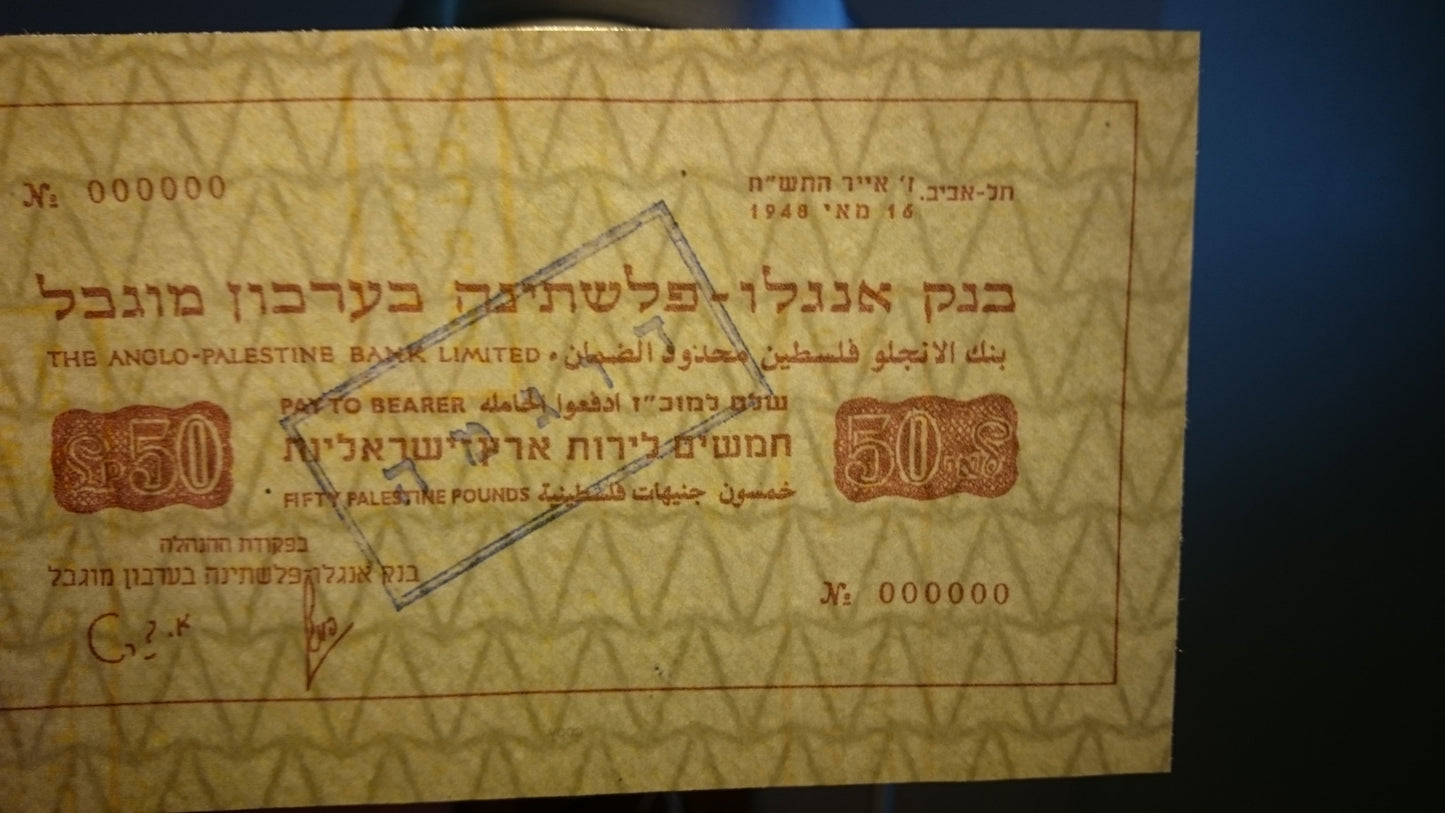 № 000000
תל-אביב. ז' אייר התש"ח
16 מאי 1948
בנק אנגלו-פלשתינה בערבון מוגבל
THE ANGLO-PALESTINE BANK LIMITED • بنك الانجلو فلسطين محدود الضمان
PAY TO BEARER ادفعوا لحامله שלם למוכ"ז
£P50
חמשים לירות ארץ-ישראליות
50 £
FIFTY PALESTINE POUNDS خمسون جنيهات فلسطينية
דוגמה
בפקודת ההנהלה
בנק אנגלו-פלשתינה בערבון מוגבל
№ 000000